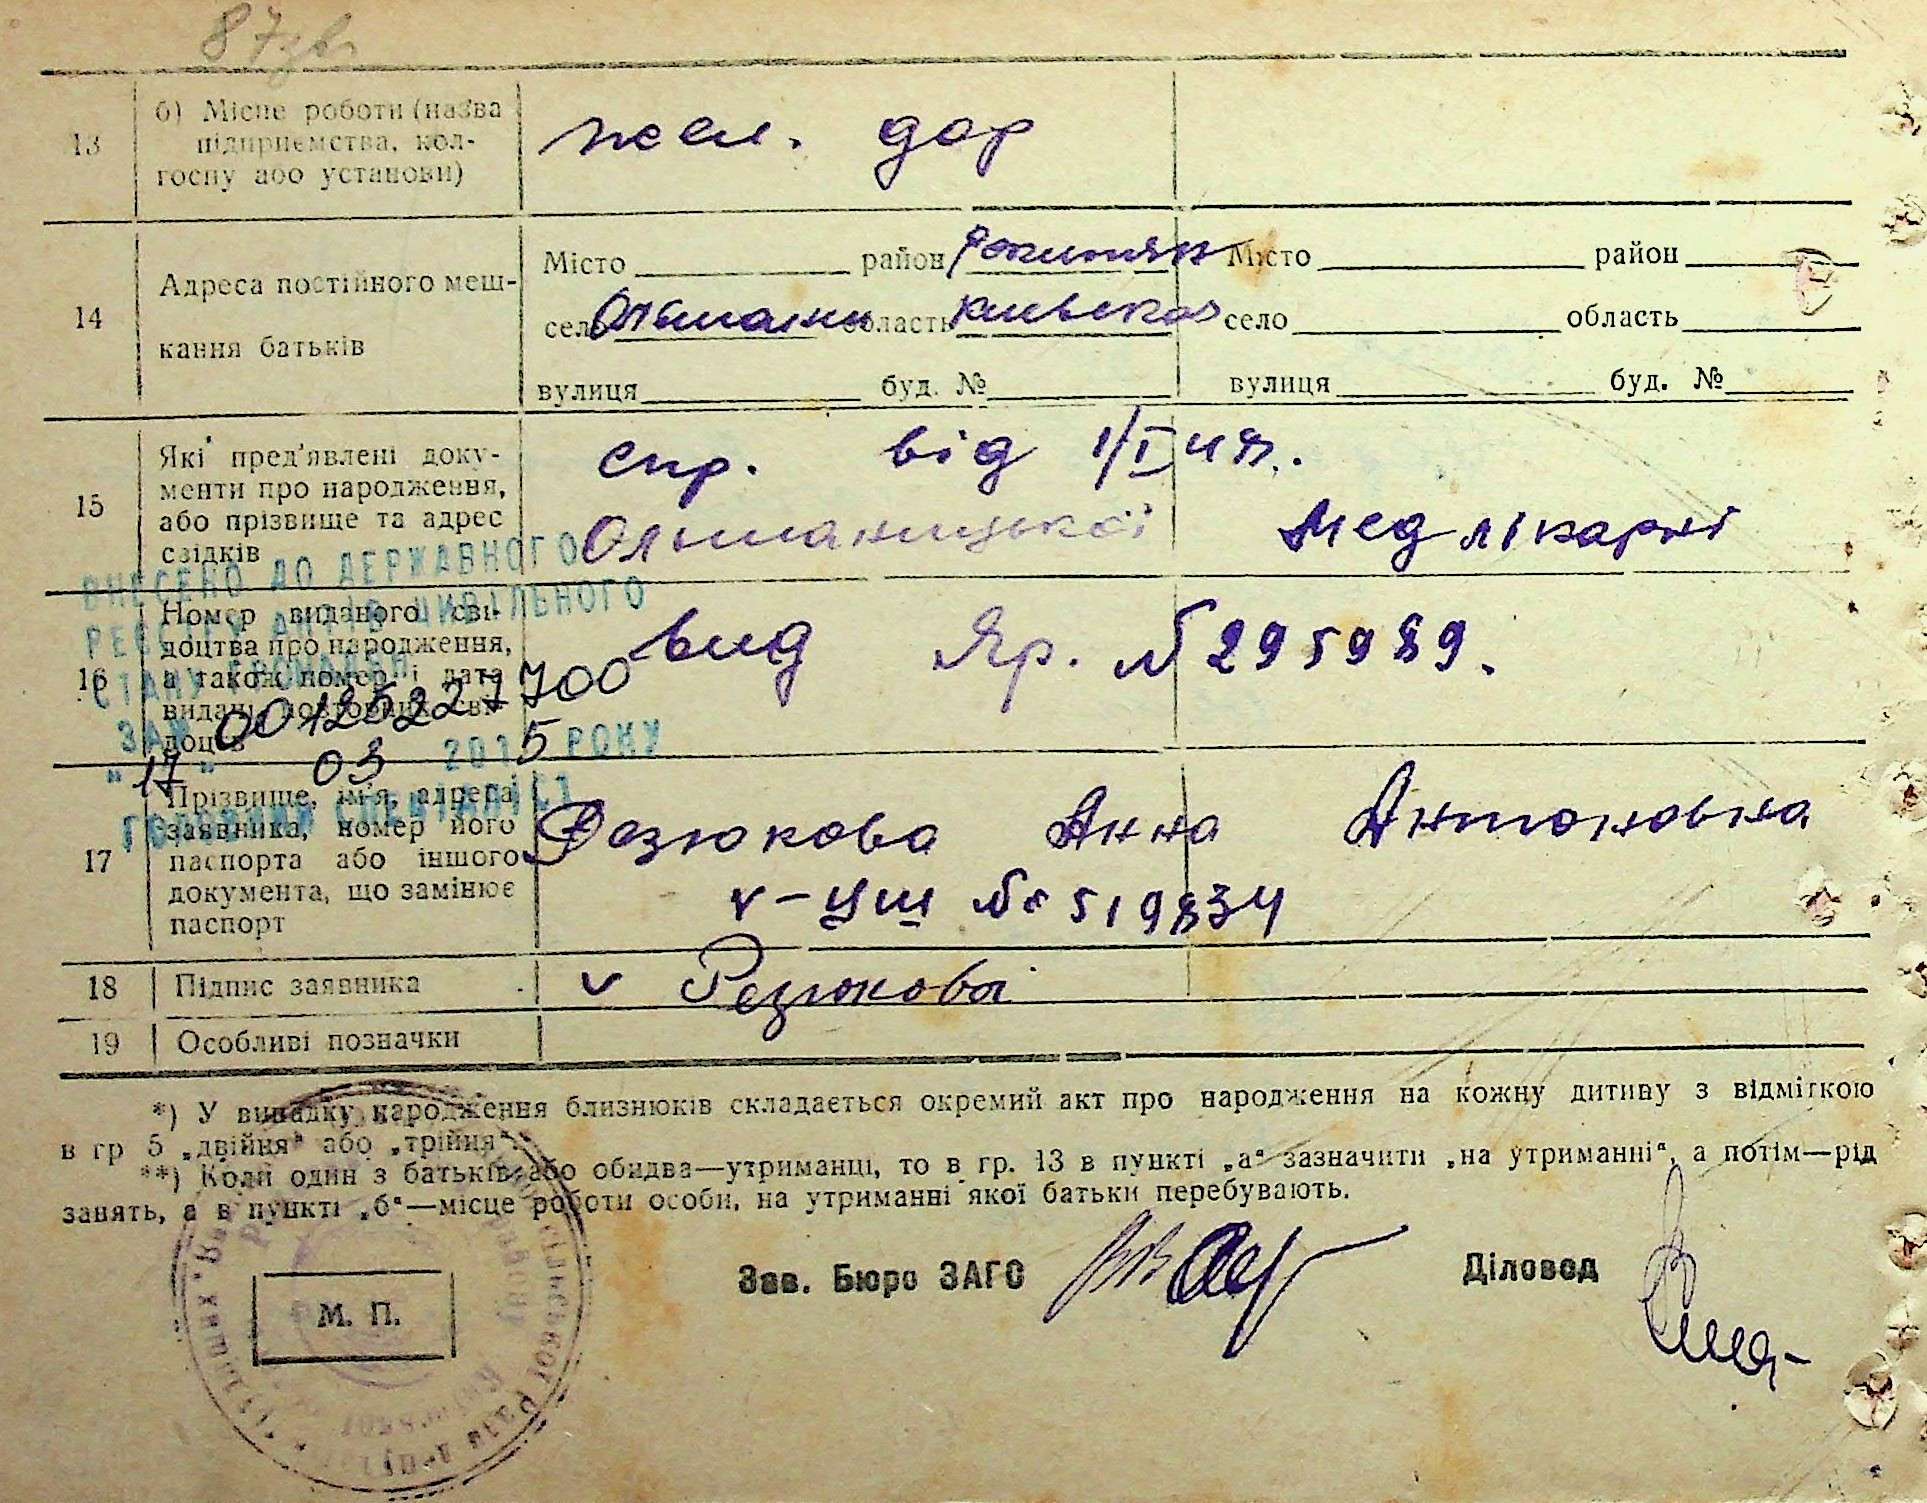 13 б) Місце роботи (назва підприємства, колгоспу або установи) жел. дор
14 Адреса постійного мешкання батьків
Місто район Рокитян Місто район
село Ольшани область Киевская село область
вулиця буд. № вулиця буд. №
15 Які пред'явлені документи про народження, або прізвище та адрес свідків
спр. від 1/I 48.
Ольшаницької Мед лікарні
ВНЕСЕНО ДО ДЕРЖАВНОГО
РЕЄСТРУ АКТІВ ЦИВІЛЬНОГО
СТАНУ ГРОМАДЯН
ЗА № 00125227700
"17" 03 2015 РОКУ
ГОЛОВНИЙ СПЕЦІАЛІСТ
16 Номер виданого свідоцтва про народження, а також номер і дата видачі повторних свідоцтв
вид Яр. № 295989.
17 Прізвище, ім'я, адреса заявника, номер його паспорта або іншого документа, що замінює паспорт
Резюкова Анна Антоновна
V-УШ № 519834
18 Підпис заявника v Резюкова
19 Особливі позначки
*) У випадку народження близнюків складається окремий акт про народження на кожну дитину з відміткою
в гр 5 „двійня“ або „трійня“.
**) Коли один з батьків або обидва—утриманці, то в гр. 13 в пункті „а“ зазначити „на утриманні“, а потім—рід
занять, а в пункті „б“—місце роботи особи, на утриманні якої батьки перебувають.
Зав. Бюро ЗАГС Діловод
М. П.